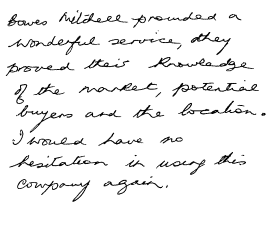 Bowes Mitchell provided a
wonderful service, they
proved their knowledge
of the market, potential
buyers and the location.
I would have no
hesitation in using this
company again.